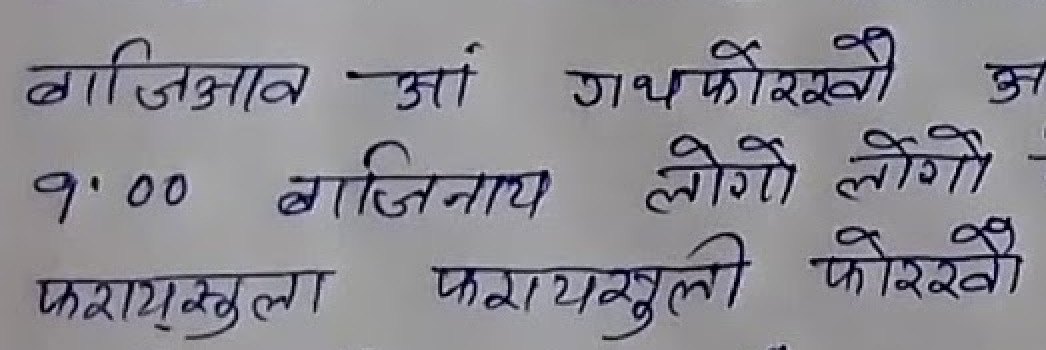 बाजिआव आं गथफोरखौ अ
9.00 बाजिनाय लोगो लोगो
फरायसुला फरायखुली फोरखौ